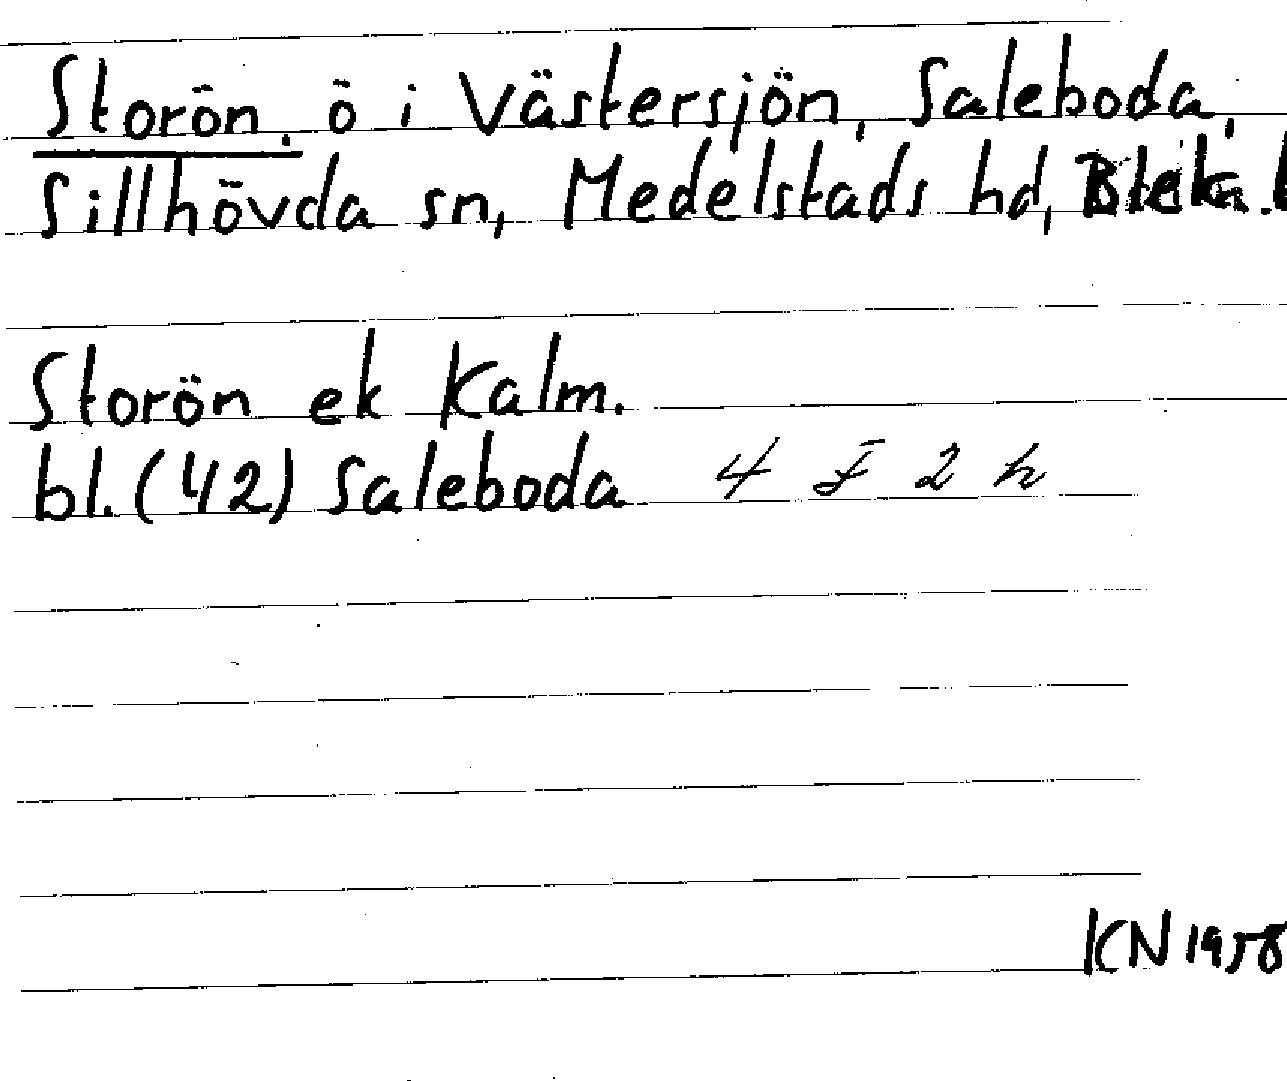 Storön, ö i Västersjön, Saleboda,
Sillhövda sn, Medelstads hd, Blek. l
Storön ek Kalm.
bl. (42) Saleboda 4 F 2 h
KN 1958